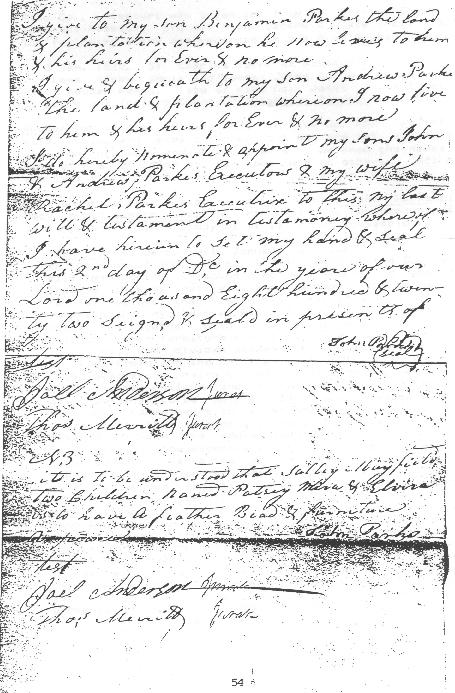 I give to my son Benjamin Parkes the land
& plantation whereon he now lives to him
& his heirs for Ever & no more
I give & bequeath to my son Andrew Parke
the land & plantation whereon I now live
to him & his heirs for Ever & no more
I do hereby nominate & appoint my sons John
& Andrew Parkes Executors & my wife
Rachel Parkes Executrix to this my last
will & testament in testamoney where of
I have herein to set my hand & seal
this 2nd day of Dc in the yeare of our
Lord one thousand Eight hundred & twen-
ty two Seignd & Seald in presents of
John Parkes
(seal)
test
Joel Anderson Jurat
Thos Merritt Jurat
NB
it is to be understood that Salley
two Children named Patsey & Elvira
is to have A feather Bead & furniture
John Parks
test
Joel Anderson Jurat
Thos Merritt Jurat
54